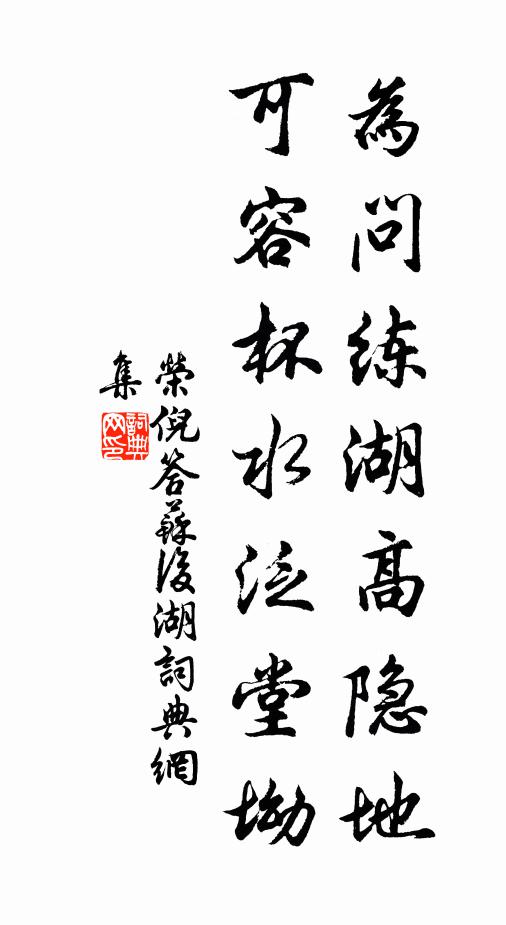 為问练湖高隐地
可容杯水泛堂坳
榮倪答蘇後湖詞典網
集
詞典网印